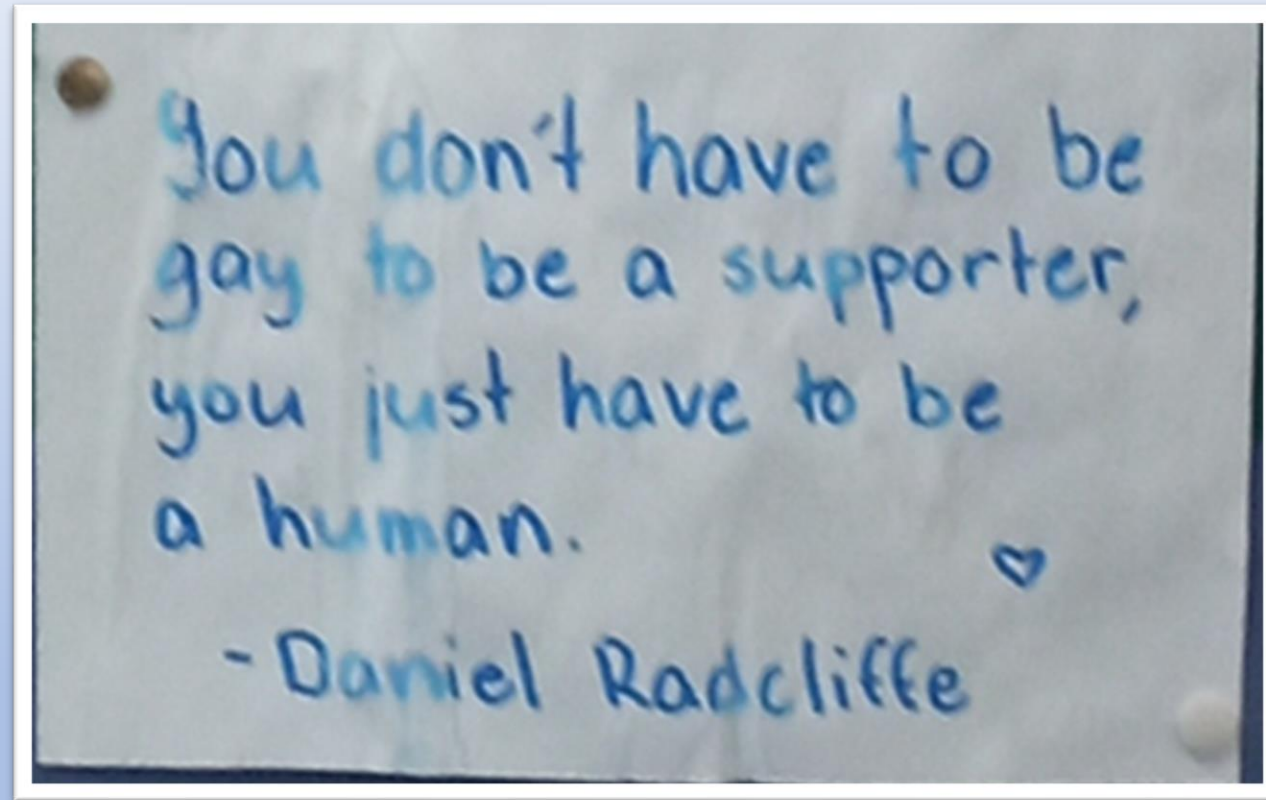 You don't have to be
gay to be a supporter,
you just have to be
a human.
- Daniel Radcliffe